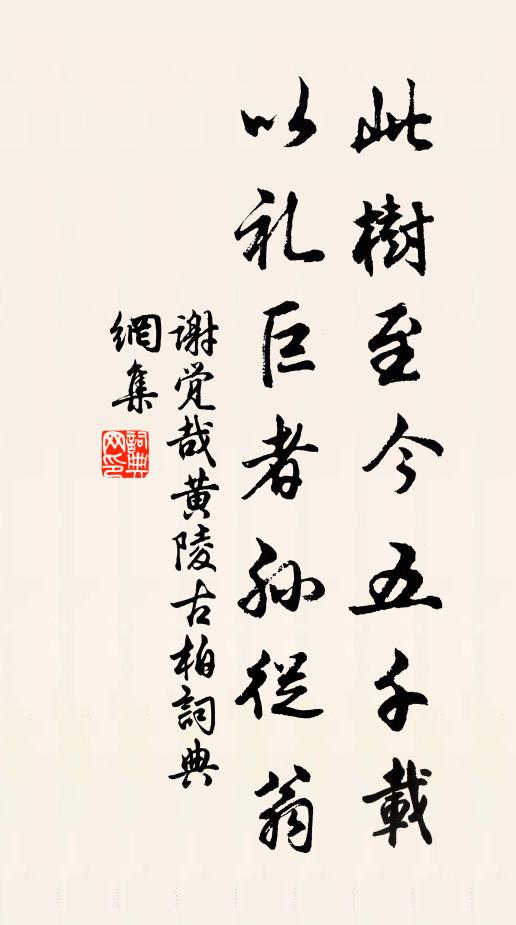 此樹至今五千載
以礼巨者孙從翁
谢觉哉黄陵古柏詞典
網集
詞典
网印